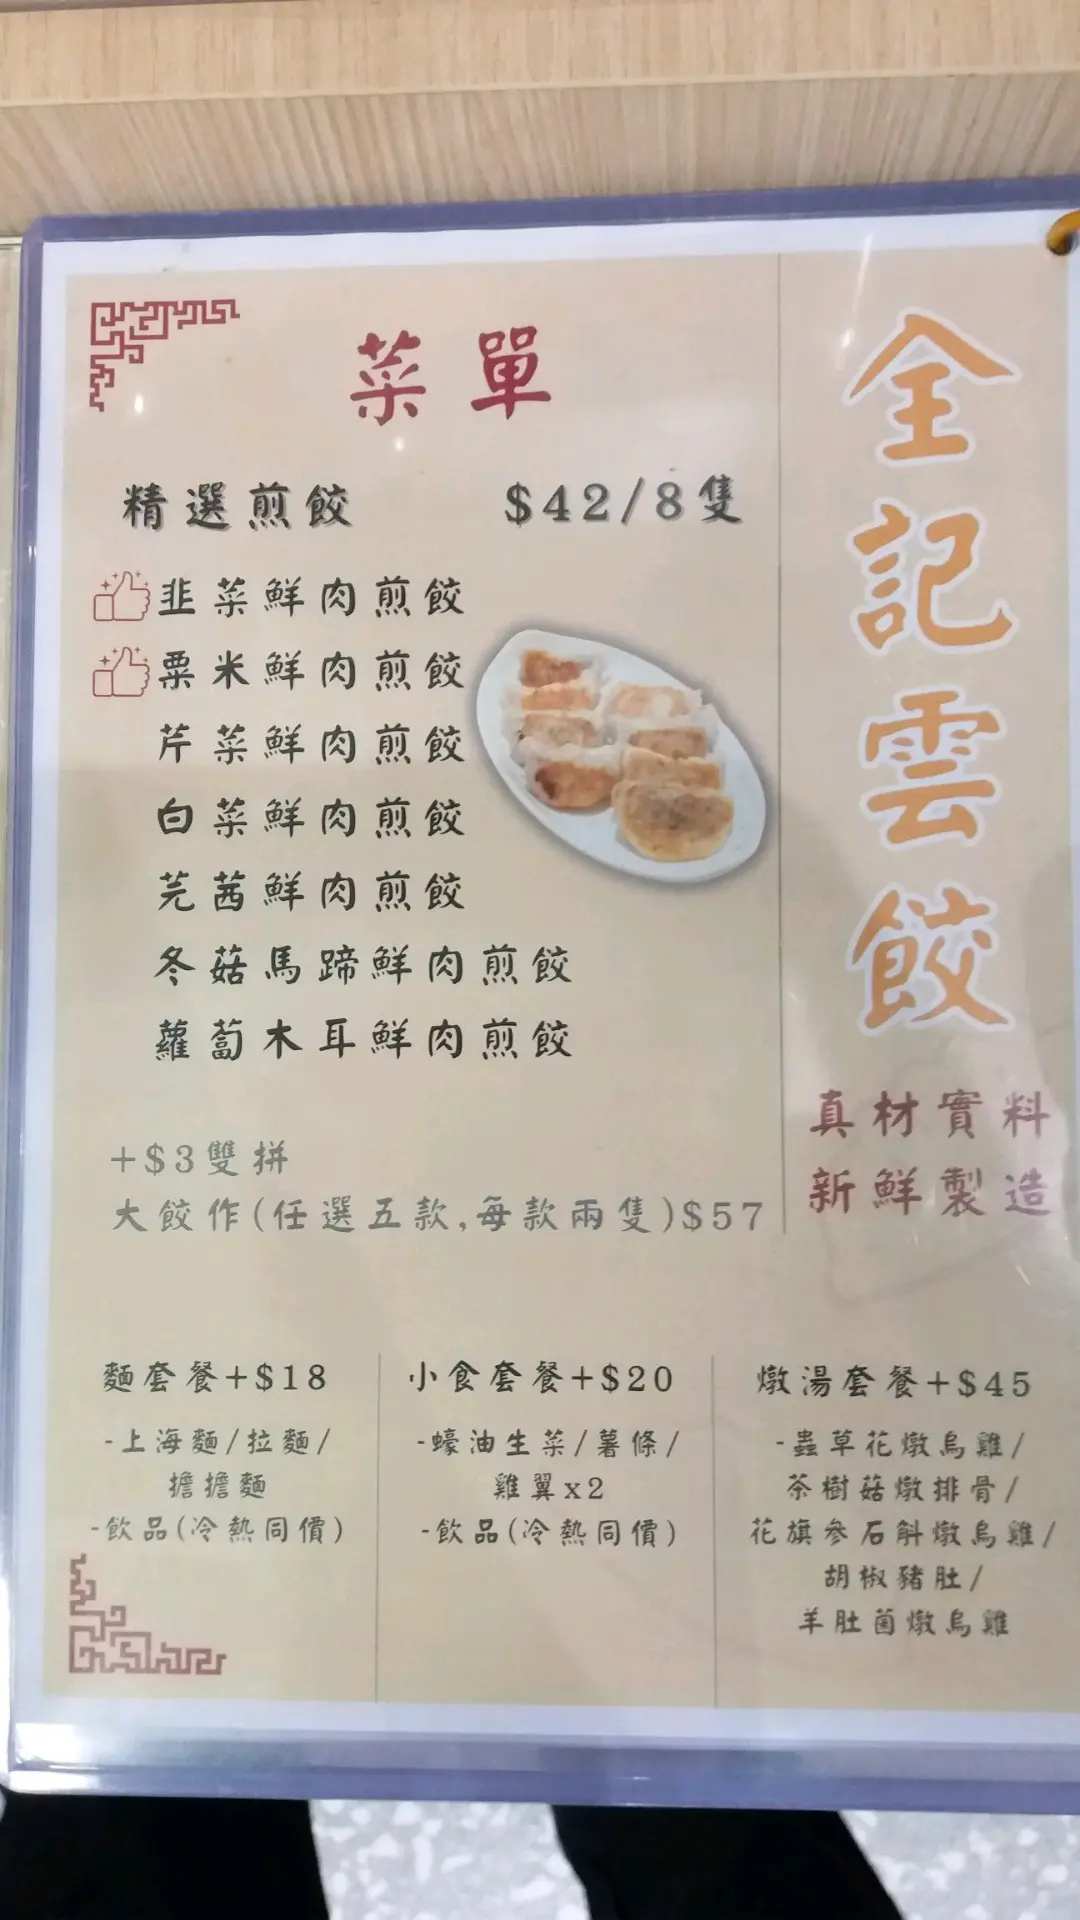 菜單
精選煎餃 $42/8隻
韭菜鮮肉煎餃
粟米鮮肉煎餃
芹菜鮮肉煎餃
白菜鮮肉煎餃
芫茜鮮肉煎餃
冬菇馬蹄鮮肉煎餃
蘿蔔木耳鮮肉煎餃
+$3雙拼
大餃作(任選五款,每款兩隻)$57
全記雲餃
真材實料
新鮮製造
麵套餐+$18
-上海麵/拉麵/
擔擔麵
-飲品(冷熱同價)
小食套餐+$20
-蠔油生菜/薯條/
雞翼x2
-飲品(冷熱同價)
燉湯套餐+$45
-蟲草花燉烏雞/
茶樹菇燉排骨/
花旗參石斛燉烏雞/
胡椒豬肚/
羊肚菌燉烏雞